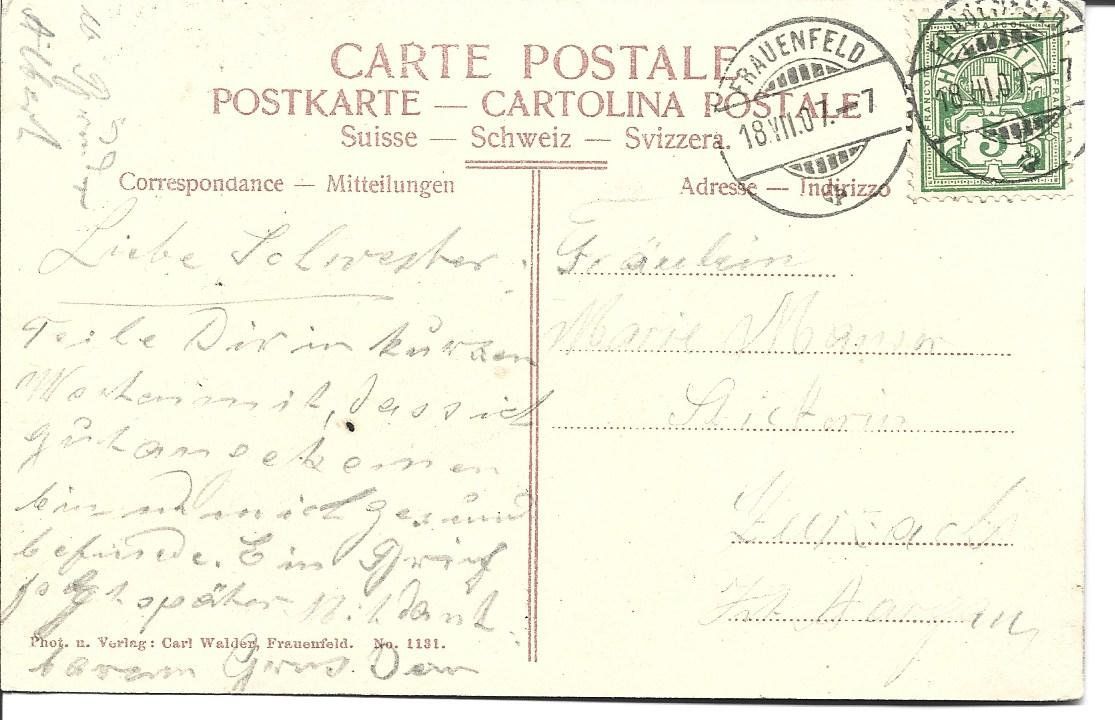 CARTE POSTALE
POSTKARTE — CARTOLINA POSTALE
Suisse — Schweiz — Svizzera.
Correspondance — Mitteilungen
Adresse — Indirizzo
FRAUENFELD
18.VII.07.–7
FRAUENFELD
18.VII.07.–7
FRANCO
HELVETIA
FRANCO
FRANCO
5
Liebe Schwester.
Teile Dir in kurzen
Worten mit, dass ich
gut angekommen
bin und mich gesund
befinde. Ein Brief
folgt später. Mit dank
barem Gruss Dein
Albert
Fräulein
Marie
Stickerin
Zurzach
Kt. Aargau
Phot. u. Verlag: Carl Walder, Frauenfeld. No. 1131.